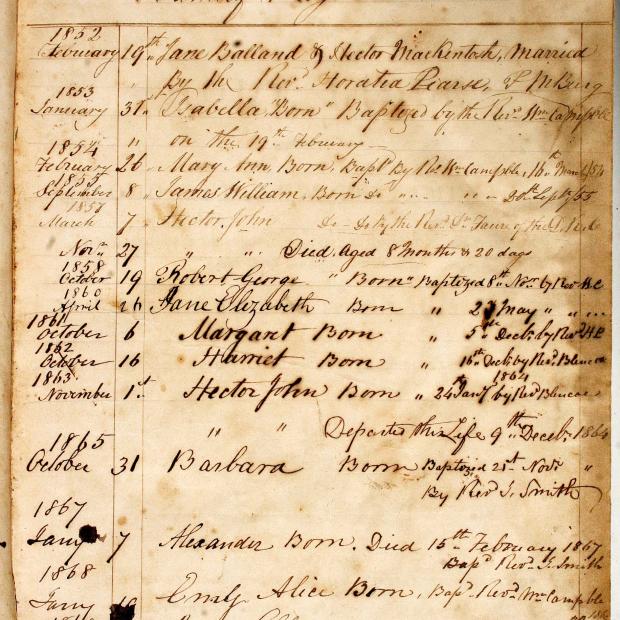 1852
February 19th Jane Balland & Hector Mackintosh, Married
By the Revd. Horatia Pearse,
1853
January 31 Isabella, Born " Baptized by the Revd. Wm Campble
on the 19th February
1854
February 26 Mary Ann, Born, Bapt By Rev Wm Campble, 16th March/54
1855
September 8 James William, Born Do
1857
March 7 Hector John Do by the Revd. Dr Faure of the
Novr. 27 " " Died, Aged 8 Months & 20 days
1858
October 19 Robert George " Born " Baptized 8th Novr by Revd
1860
April 26 Jane Elizabeth Born " May " "
1861
October 6 Margaret Born " 5th Decbr by Revd
1862
October 16 Harriet Born " 16th Decbr by Revd Blencoe
1863 1864
November 1st Hector John Born " 24th Jany by Revd Blencoe
" " Departed this Life 9th Decebr 1864
1865
October 31 Barbara Born Baptized 21st Novr "
By Revd J. Smith
1867
Jany 7 Alexander Born. Died 15th February 1867
Bapd Revd J. Smith
1868
Jany Emily Alice Born, Bapd Revd Wm Campble